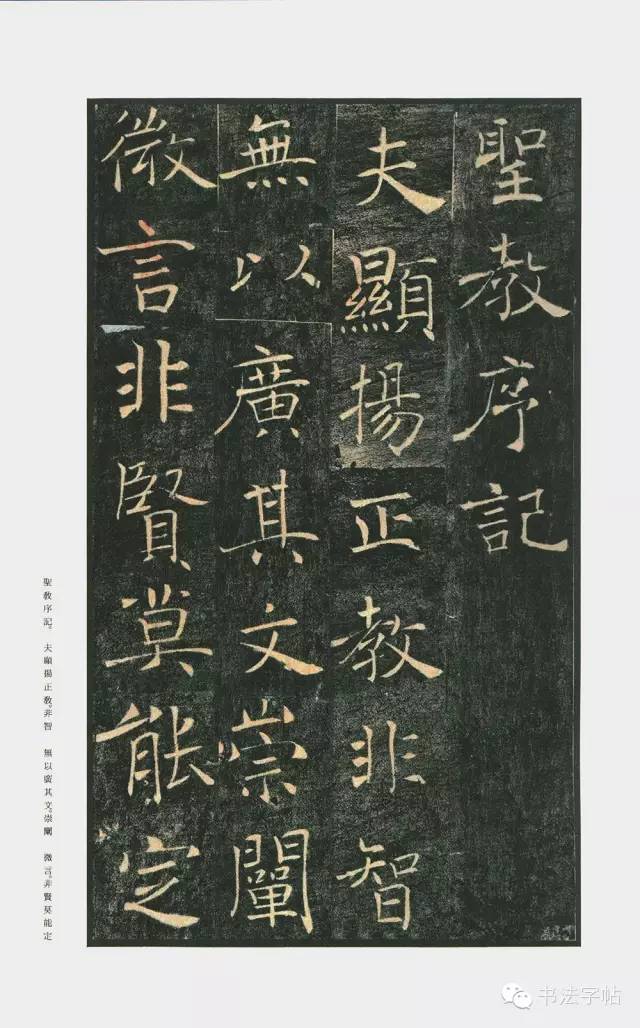 聖教序記
夫顯揚正教非智
無以廣其文崇闡
微言非賢莫能定
聖教序記。　夫顯揚正教。非智　無以廣其文。崇闡　微言。非賢莫能定
书法字帖